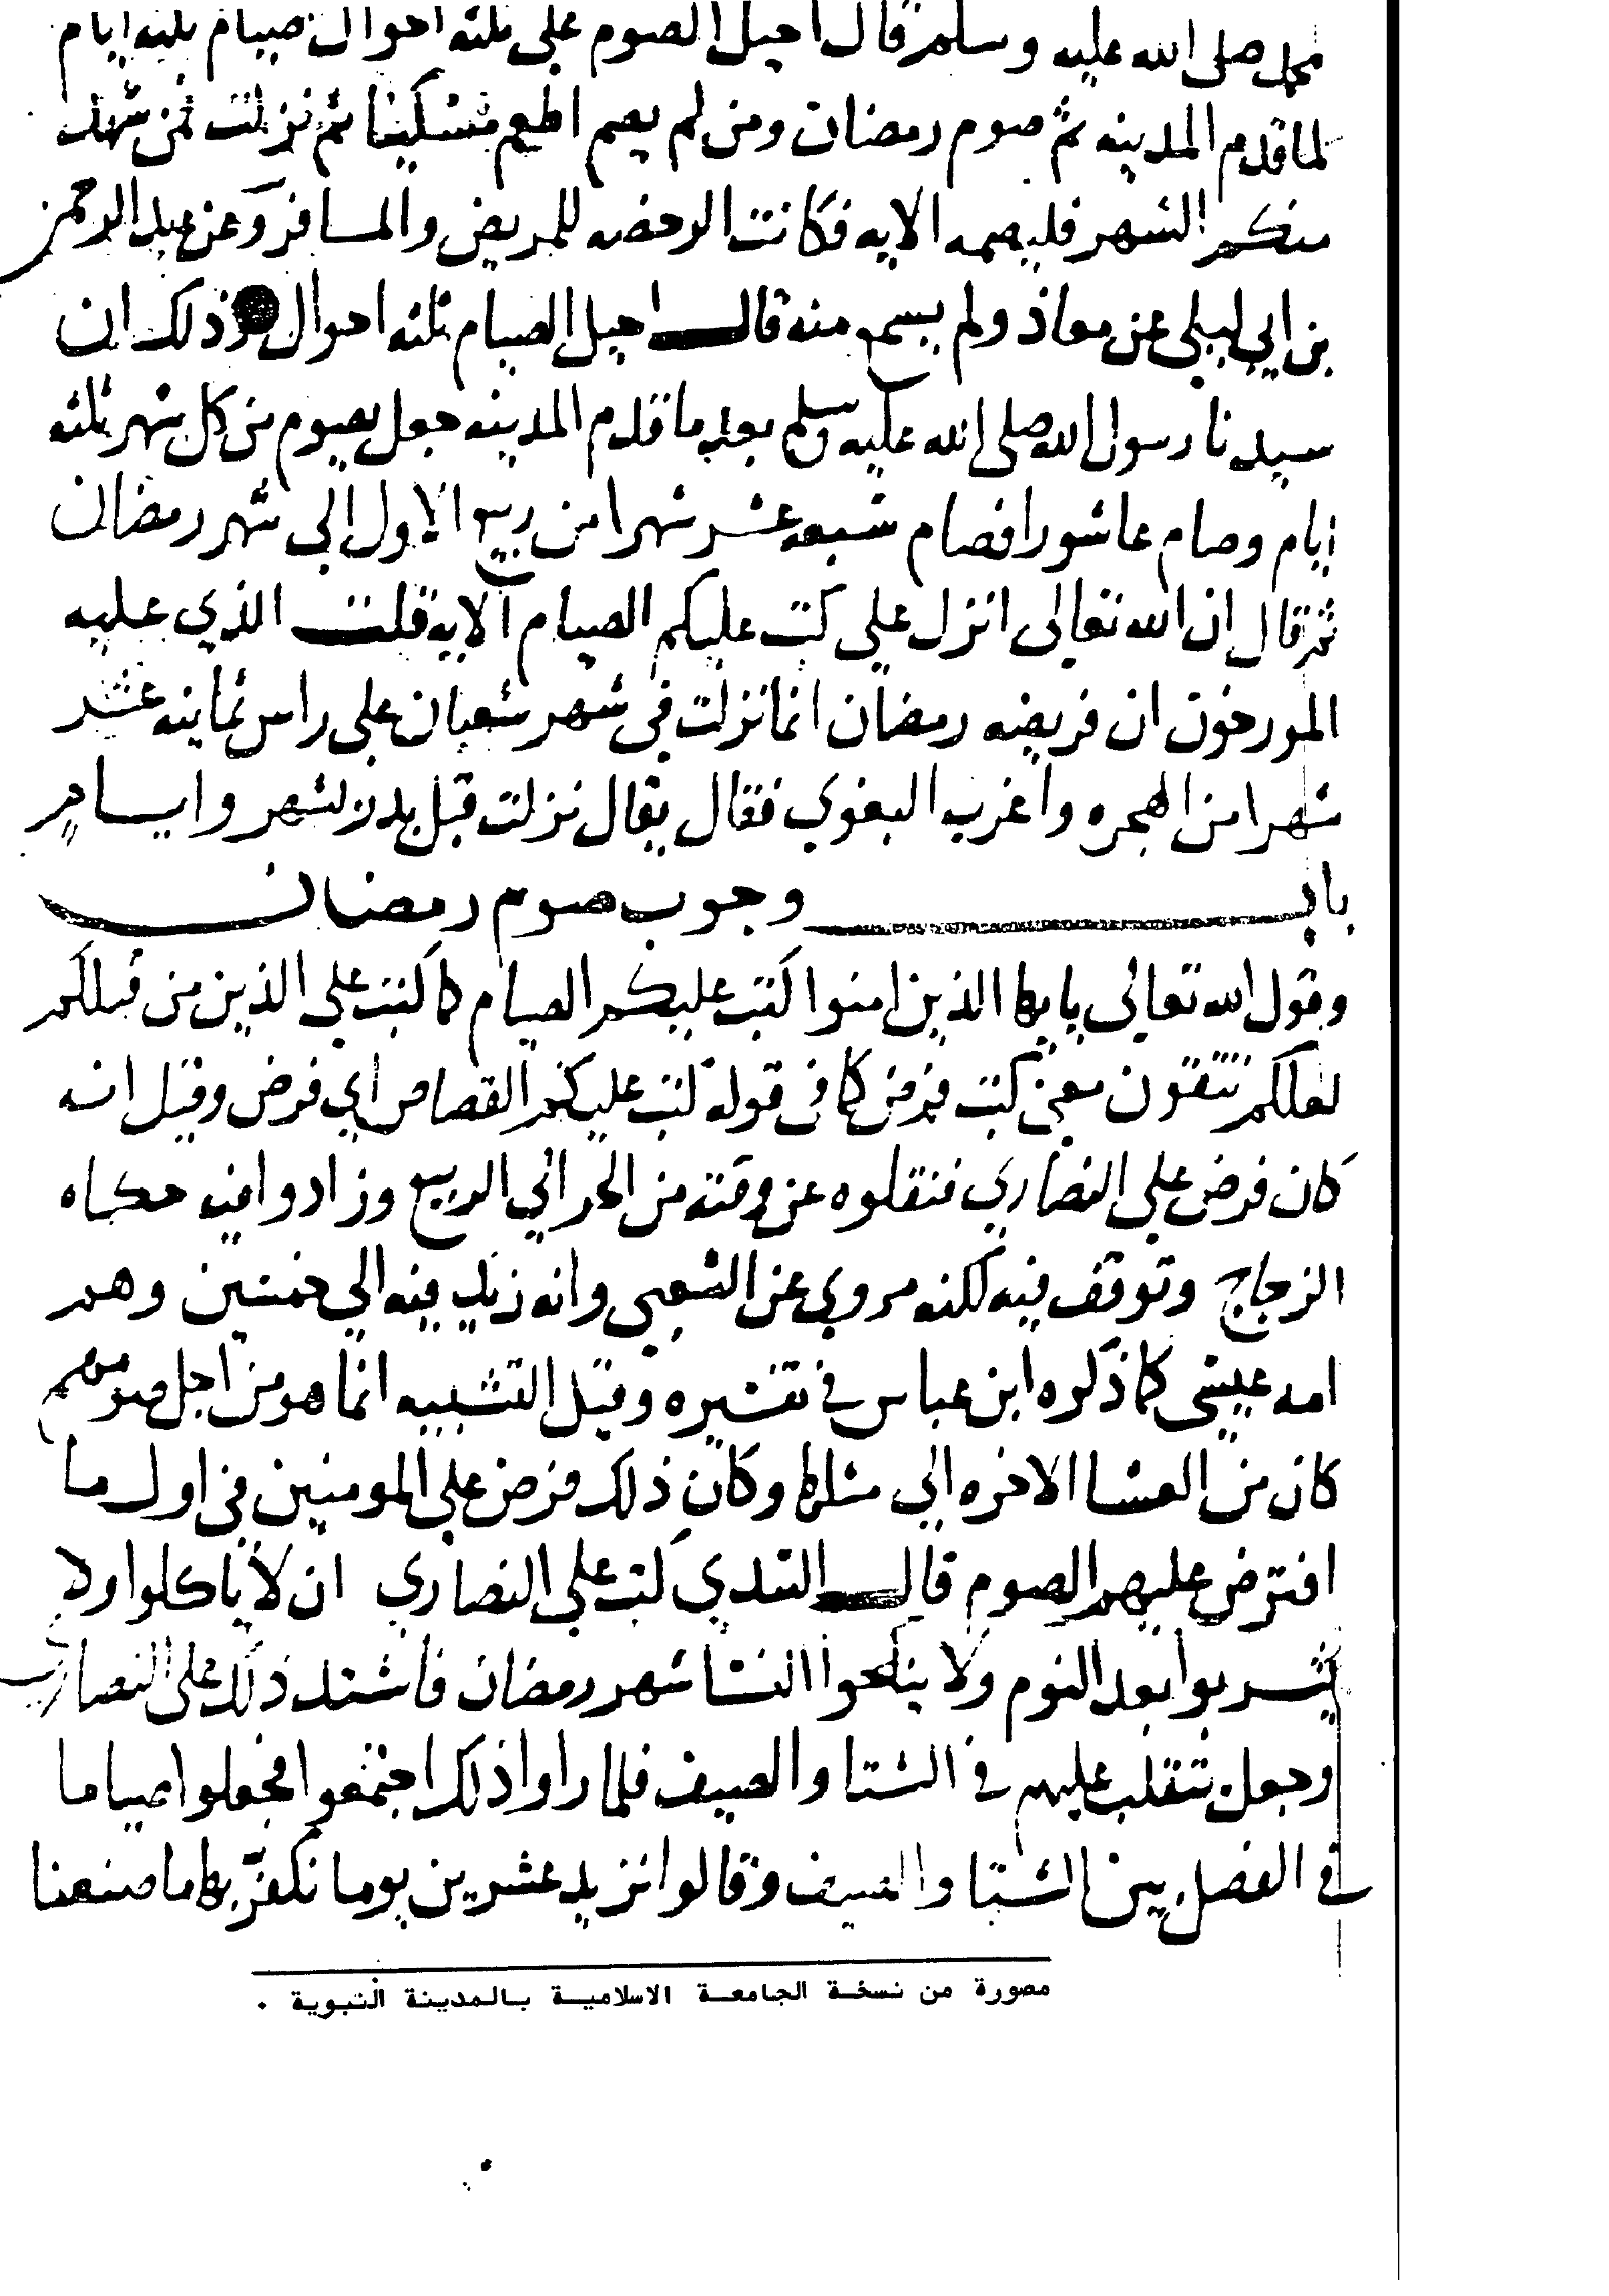 محمد صلى الله عليه وسلم قال احيل الصوم على ثلثه احوال صيام ثلثه ايام
لما قدم المدينه ثم صوم رمضان ومن لم يصم اطعم مسكينا ثم نزلت فمن شهد
منكم الشهر فليصمه الايه فكانت الرخصه للمريض والمسافر وعن عبد الرحمن
بن ابي ليلى عن معاذ ولم يسمع منه قال احيل الصيام ثلثه احوال وذلك ان
سيدنا رسول الله صلى الله عليه وسلم بعد ما قدم المدينه جعل يصوم من كل شهر ثلثه
ايام وصام عاشورا فصام سبعه عشر شهرا من ربيع الاول الى شهر رمضان
ثم قال ان الله تعالى انزل على كتب عليكم الصيام الايه قلت الذي عليه
المورخون ان فريضه رمضان انما نزلت في شهر شعبان على راس ثمانيه عشر
شهرا من الهجره واغرب البغوي فقال يقال نزلت قبل بدر لشهر وايام
باب وجوب صوم رمضان
وقول الله تعالى يايها الذين امنوا كتب عليكم الصيام كما كتب على الذين من قبلكم
لعلكم تتقون معنى كتب فرض كما في قوله كتب عليكم القصاص اي فرض وقيل انه
كان فرض على النصاري فنقلوه عن وقته من الحر الي الربيع وزادوا فيه حكاه
الزجاج وتوقف فيه لكنه مروي عن الشعبي وانه زيد فيه الي خمسين وهم
امه عيسى كما ذكره ابن عباس في تفسيره وقيل التشبيه انما هو من اجل صومهم
كان من العشا الاخره الي مثلها وكان ذلك فرض على المومنين في اول ما
افترض عليهم الصوم قال السدي كتب على النصاري ان لا ياكلوا ولا
يشربوا بعد النوم ولا ينكحوا النسا شهر رمضان فاشتد ذلك على النصاري
وجعل يتقلب عليهم في الشتا والصيف فلما راوا ذلك اجتمعوا فجعلوا صياما
في الفصل بين الشتا والصيف وقالوا نزيد عشرين يوما نكفر بها ما صنعنا
مصورة من نسخة الجامعة الاسلامية بالمدينة النبوية .